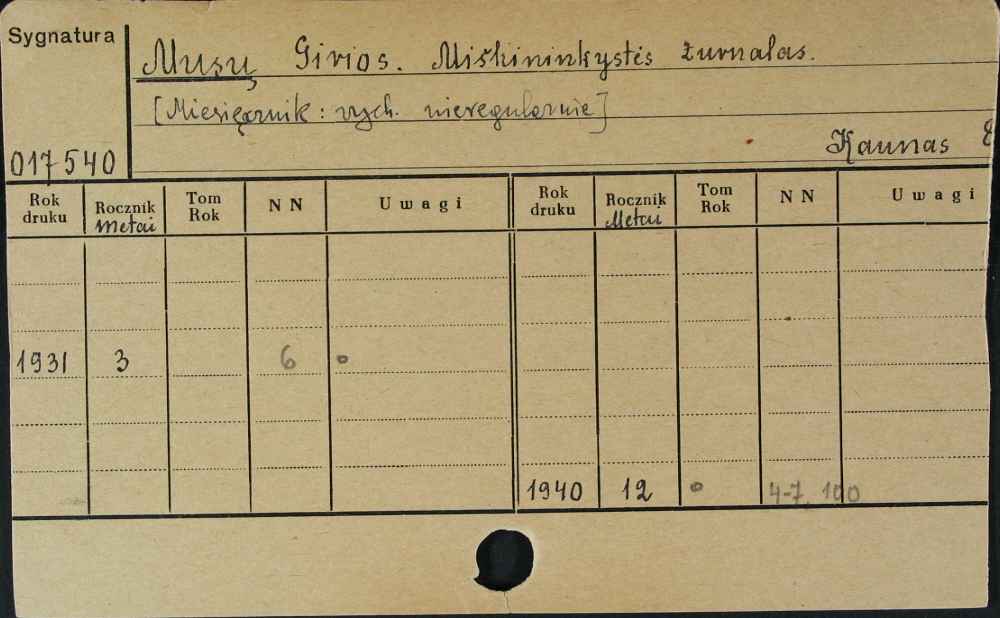 Sygnatura
Musų Girios. Miškininkystės žurnalas.
[Miesięcznik: wych. nieregularnie]
Kaunas
017540
Rok druku Rocznik Metai Tom Rok NN Uwagi Rok druku Rocznik Metai Tom Rok NN Uwagi
1931 3 6
1940 12 4-7